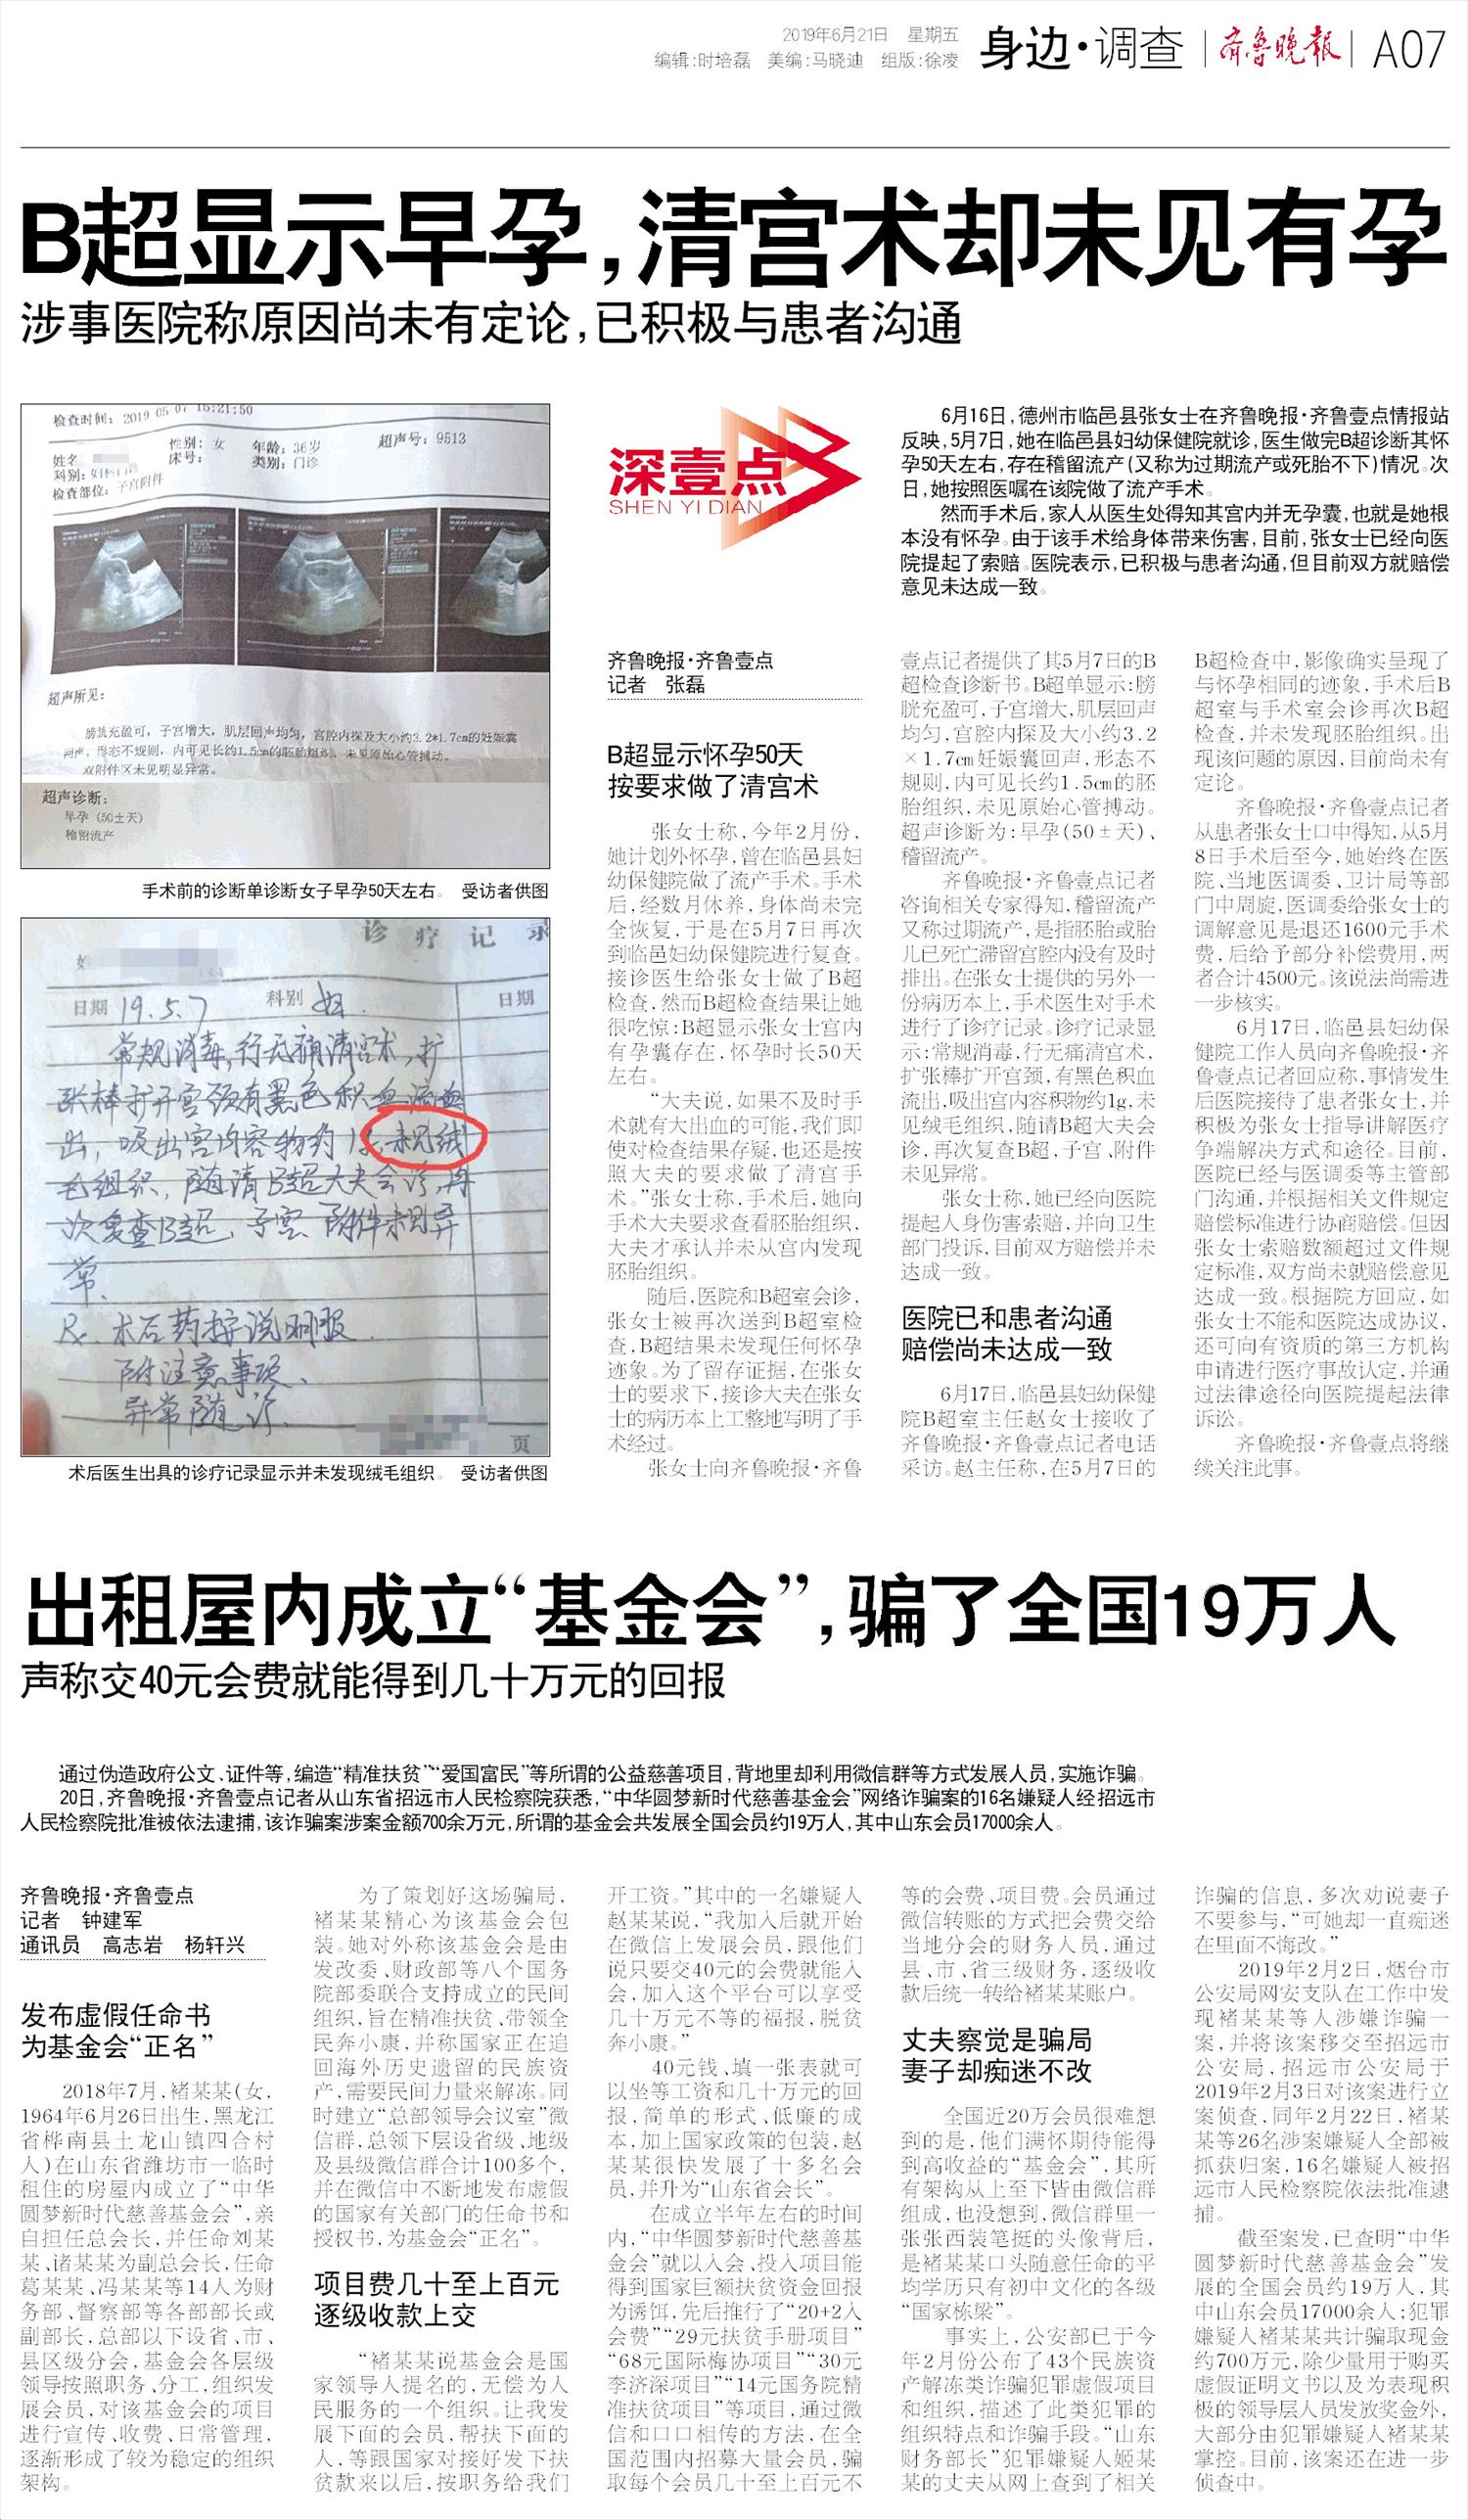 2019年6月21日　星期五
编辑:时培磊　美编:马晓迪　组版:徐凌
身边·调查
齐鲁晚报
A07
B超显示早孕,清宫术却未见有孕
涉事医院称原因尚未有定论,已积极与患者沟通
检查时间: 2019 05 07 15:21:50
姓名
性别: 女
年龄: 36岁
超声号: 9513
科别: 妇科门诊
床号:
类别: 门诊
检查部位: 子宫附件
超声所见:
膀胱充盈可, 子宫增大, 肌层回声均匀, 宫腔内探及大小约3.2*1.7cm的妊娠囊
回声, 形态不规则, 内可见长约1.5cm的胚胎组织, 未见原始心管搏动.
双附件区未见明显异常。
超声诊断:
早孕 (50±天)
稽留流产
手术前的诊断单诊断女子早孕50天左右。 受访者供图
诊 疗 记 录
姓
日期 19.5.7
科别 妇
日期
常规消毒,行无痛清宫术,扩
张棒扩开宫颈有黑色积血流血
出, 吸出宫内容物约1g,未见绒
毛组织, 随请B超大夫会诊,再
次复查B超, 子宫、附件未见异
常.
R. 术后药按说明服
附注意事项、
异常随诊.
页
术后医生出具的诊疗记录显示并未发现绒毛组织。 受访者供图
深壹点
SHEN YI DIAN
6月16日,德州市临邑县张女士在齐鲁晚报·齐鲁壹点情报站
反映,5月7日,她在临邑县妇幼保健院就诊,医生做完B超诊断其怀
孕50天左右,存在稽留流产(又称为过期流产或死胎不下)情况。次
日,她按照医嘱在该院做了流产手术。
然而手术后,家人从医生处得知其宫内并无孕囊,也就是她根
本没有怀孕。由于该手术给身体带来伤害,目前,张女士已经向医
院提起了索赔。医院表示,已积极与患者沟通,但目前双方就赔偿
意见未达成一致。
齐鲁晚报·齐鲁壹点
记者　张磊
B超显示怀孕50天
按要求做了清宫术
张女士称,今年2月份,
她计划外怀孕,曾在临邑县妇
幼保健院做了流产手术。手术
后,经数月休养,身体尚未完
全恢复,于是在5月7日再次
到临邑妇幼保健院进行复查。
接诊医生给张女士做了B超
检查,然而B超检查结果让她
很吃惊:B超显示张女士宫内
有孕囊存在,怀孕时长50天
左右。
“大夫说,如果不及时手
术就有大出血的可能,我们即
使对检查结果存疑,也还是按
照大夫的要求做了清宫手
术。”张女士称,手术后,她向
手术大夫要求查看胚胎组织,
大夫才承认并未从宫内发现
胚胎组织。
随后,医院和B超室会诊,
张女士被再次送到B超室检
查,B超结果未发现任何怀孕
迹象。为了留存证据,在张女
士的要求下,接诊大夫在张女
士的病历本上工整地写明了手
术经过。
张女士向齐鲁晚报·齐鲁
壹点记者提供了其5月7日的B
超检查诊断书。B超单显示:膀
胱充盈可,子宫增大,肌层回声
均匀,宫腔内探及大小约3.2
×1.7cm妊娠囊回声,形态不
规则,内可见长约1.5cm的胚
胎组织,未见原始心管搏动。
超声诊断为:早孕(50±天)、
稽留流产。
齐鲁晚报·齐鲁壹点记者
咨询相关专家得知,稽留流产
又称过期流产,是指胚胎或胎
儿已死亡滞留宫腔内没有及时
排出。在张女士提供的另外一
份病历本上,手术医生对手术
进行了诊疗记录。诊疗记录显
示:常规消毒,行无痛清宫术,
扩张棒扩开宫颈,有黑色积血
流出,吸出宫内容积物约1g,未
见绒毛组织,随请B超大夫会
诊,再次复查B超,子宫、附件
未见异常。
张女士称,她已经向医院
提起人身伤害索赔,并向卫生
部门投诉,目前双方赔偿并未
达成一致。
医院已和患者沟通
赔偿尚未达成一致
6月17日,临邑县妇幼保健
院B超室主任赵女士接收了
齐鲁晚报·齐鲁壹点记者电话
采访。赵主任称,在5月7日的
B超检查中,影像确实呈现了
与怀孕相同的迹象,手术后B
超室与手术室会诊再次B超
检查,并未发现胚胎组织。出
现该问题的原因,目前尚未有
定论。
齐鲁晚报·齐鲁壹点记者
从患者张女士口中得知,从5月
8日手术后至今,她始终在医
院、当地医调委、卫计局等部
门中周旋,医调委给张女士的
调解意见是退还1600元手术
费,后给予部分补偿费用,两
者合计4500元。该说法尚需进
一步核实。
6月17日,临邑县妇幼保
健院工作人员向齐鲁晚报·齐
鲁壹点记者回应称,事情发生
后医院接待了患者张女士,并
积极为张女士指导讲解医疗
争端解决方式和途径。目前,
医院已经与医调委等主管部
门沟通,并根据相关文件规定
赔偿标准进行协商赔偿。但因
张女士索赔数额超过文件规
定标准,双方尚未就赔偿意见
达成一致。根据院方回应,如
张女士不能和医院达成协议,
还可向有资质的第三方机构
申请进行医疗事故认定,并通
过法律途径向医院提起法律
诉讼。
齐鲁晚报·齐鲁壹点将继
续关注此事。
出租屋内成立“基金会”,骗了全国19万人
声称交40元会费就能得到几十万元的回报
通过伪造政府公文、证件等,编造“精准扶贫”“爱国富民”等所谓的公益慈善项目,背地里却利用微信群等方式发展人员,实施诈骗。
20日,齐鲁晚报·齐鲁壹点记者从山东省招远市人民检察院获悉,“中华圆梦新时代慈善基金会”网络诈骗案的16名嫌疑人经招远市
人民检察院批准被依法逮捕,该诈骗案涉案金额700余万元,所谓的基金会共发展全国会员约19万人,其中山东会员17000余人。
齐鲁晚报·齐鲁壹点
记者　钟建军
通讯员　高志岩　杨轩兴
发布虚假任命书
为基金会“正名”
2018年7月,褚某某(女,
1964年6月26日出生,黑龙江
省桦南县土龙山镇四合村
人)在山东省潍坊市一临时
租住的房屋内成立了“中华
圆梦新时代慈善基金会”,亲
自担任总会长,并任命刘某
某、诸某某为副总会长,任命
葛某某、冯某某等14人为财
务部、督察部等各部部长或
副部长,总部以下设省、市、
县区级分会,基金会各层级
领导按照职务、分工,组织发
展会员,对该基金会的项目
进行宣传、收费、日常管理,
逐渐形成了较为稳定的组织
架构。
为了策划好这场骗局,
褚某某精心为该基金会包
装。她对外称该基金会是由
发改委、财政部等八个国务
院部委联合支持成立的民间
组织,旨在精准扶贫、带领全
民奔小康,并称国家正在追
回海外历史遗留的民族资
产,需要民间力量来解冻。同
时建立“总部领导会议室”微
信群,总领下层设省级、地级
及县级微信群合计100多个,
并在微信中不断地发布虚假
的国家有关部门的任命书和
授权书,为基金会“正名”。
项目费几十至上百元
逐级收款上交
“褚某某说基金会是国
家领导人提名的,无偿为人
民服务的一个组织。让我发
展下面的会员,帮扶下面的
人,等跟国家对接好发下扶
贫款来以后,按职务给我们
开工资。”其中的一名嫌疑人
赵某某说,“我加入后就开始
在微信上发展会员,跟他们
说只要交40元的会费就能入
会,加入这个平台可以享受
几十万元不等的福报,脱贫
奔小康。”
40元钱、填一张表就可
以坐等工资和几十万元的回
报,简单的形式、低廉的成
本,加上国家政策的包装,赵
某某很快发展了十多名会
员,并升为“山东省会长”。
在成立半年左右的时间
内,“中华圆梦新时代慈善基
金会”就以入会、投入项目能
得到国家巨额扶贫资金回报
为诱饵,先后推行了“20+2入
会费”“29元扶贫手册项目”
“68元国际梅协项目”“30元
李济深项目”“14元国务院精
准扶贫项目”等项目,通过微
信和口口相传的方法,在全
国范围内招募大量会员,骗
取每个会员几十至上百元不
等的会费、项目费。会员通过
微信转账的方式把会费交给
当地分会的财务人员,通过
县、市、省三级财务,逐级收
款后统一转给褚某某账户。
丈夫察觉是骗局
妻子却痴迷不改
全国近20万会员很难想
到的是,他们满怀期待能得
到高收益的“基金会”,其所
有架构从上至下皆由微信群
组成,也没想到,微信群里一
张张西装笔挺的头像背后,
是褚某某口头随意任命的平
均学历只有初中文化的各级
“国家栋梁”。
事实上,公安部已于今
年2月份公布了43个民族资
产解冻类诈骗犯罪虚假项目
和组织,描述了此类犯罪的
组织特点和诈骗手段。“山东
财务部长”犯罪嫌疑人姬某
某的丈夫从网上查到了相关
诈骗的信息,多次劝说妻子
不要参与,“可她却一直痴迷
在里面不悔改。”
2019年2月2日,烟台市
公安局网安支队在工作中发
现褚某某等人涉嫌诈骗一
案,并将该案移交至招远市
公安局,招远市公安局于
2019年2月3日对该案进行立
案侦查,同年2月22日,褚某
某等26名涉案嫌疑人全部被
抓获归案,16名嫌疑人被招
远市人民检察院依法批准逮
捕。
截至案发,已查明“中华
圆梦新时代慈善基金会”发
展的全国会员约19万人,其
中山东会员17000余人;犯罪
嫌疑人褚某某共计骗取现金
约700万元,除少量用于购买
虚假证明文书以及为表现积
极的领导层人员发放奖金外,
大部分由犯罪嫌疑人褚某某
掌控。目前,该案还在进一步
侦查中。